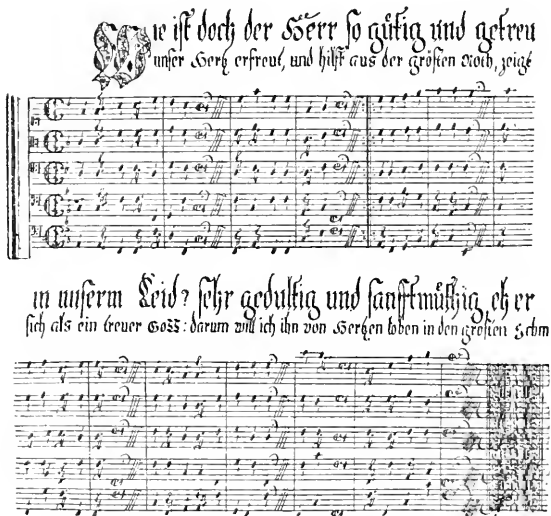 Wie ist doch der Herr so gütig und getreu
unser Hertz erfreut, und hilfft aus der grösten Noth, zeigt
in unserm Leid? sehr gedultig und sanfftmüthig, eh er
sich als ein treuer Gott: darum will ich ihn von Hertzen loben in den grösten Schm